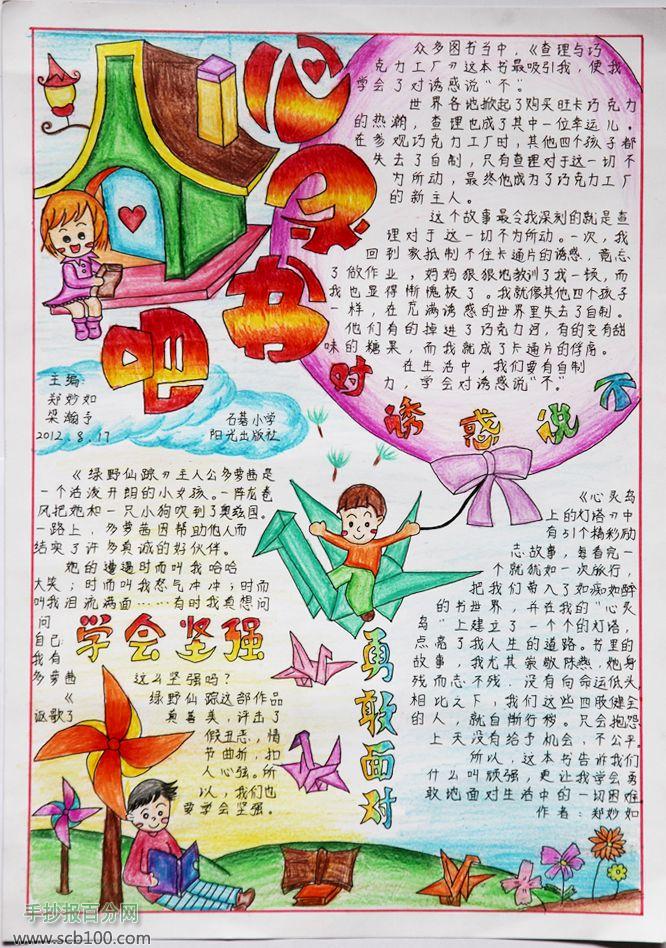 心灵书吧
众多图书当中,《查理与巧
克力工厂》这本书最吸引我,使我
学会了对诱惑说“不”。
世界各地掀起了购买旺卡巧克力
的热潮,查理也成了其中一位幸运儿。
在参观巧克力工厂时,其他四个孩子都
失去了自制,只有查理对于这一切不
为所动,最终他成为了巧克力工厂
的新主人。
这个故事最令我深刻的就是查
理对于这一切不为所动。一次,我
回到家抵制不住卡通片的诱惑,竟忘
了做作业,妈妈狠狠地教训了我一顿,而
我也显得惭愧极了。我就像其他四个孩子
一样,在充满诱惑的世界里失去了自制。
他们有的掉进了巧克力河,有的变有甜
味的糖果,而我就成了卡通片的俘虏。
在生活中,我们要有自制
力,学会对诱惑说“不”。
对诱惑说不
主编:
郑妙如
梁瀚予
2012.8.17
石碁小学
阳光出版社
《绿野仙踪》主人公多萝茜是
一个活泼开朗的小女孩。一阵龙卷
风把她和一只小狗吹到了奥兹国。
一路上,多萝茜因帮助他人而
结实了许多真诚的好伙伴。
她的遭遇时而叫我哈哈
大笑;时而叫我怒气冲冲;时而
叫我泪流满面……有时我真想问
问
自己:
我有
多萝茜
这么坚强吗?
学会坚强
《绿野仙踪这部作品
讴歌了真善美,评击了
假丑恶,情
节曲折,扣
人心弦。所
以,我们也
要学会坚强。
《心灵岛
上的灯塔》中
有51个精彩励
志故事,每看完一
个就犹如一次旅行,
把我们带入了如痴如醉
的书世界,并在我的“心灵
岛”上建立了一个个的灯塔,
点亮了我人生的道路。书里的
故事,我尤其崇敬陈燕,她身
残而志不残,没有向命运低头,
相比之下,我们这些四肢健全
的人,就自惭行秽。只会抱怨
上天没有给予机会,不公平。
所以,这本书告诉我们
什么叫顽强,更让我学会勇
敢地面对生活中的一切困难
作者:郑妙如
勇敢面对
手抄报百分网
www.scb100.com